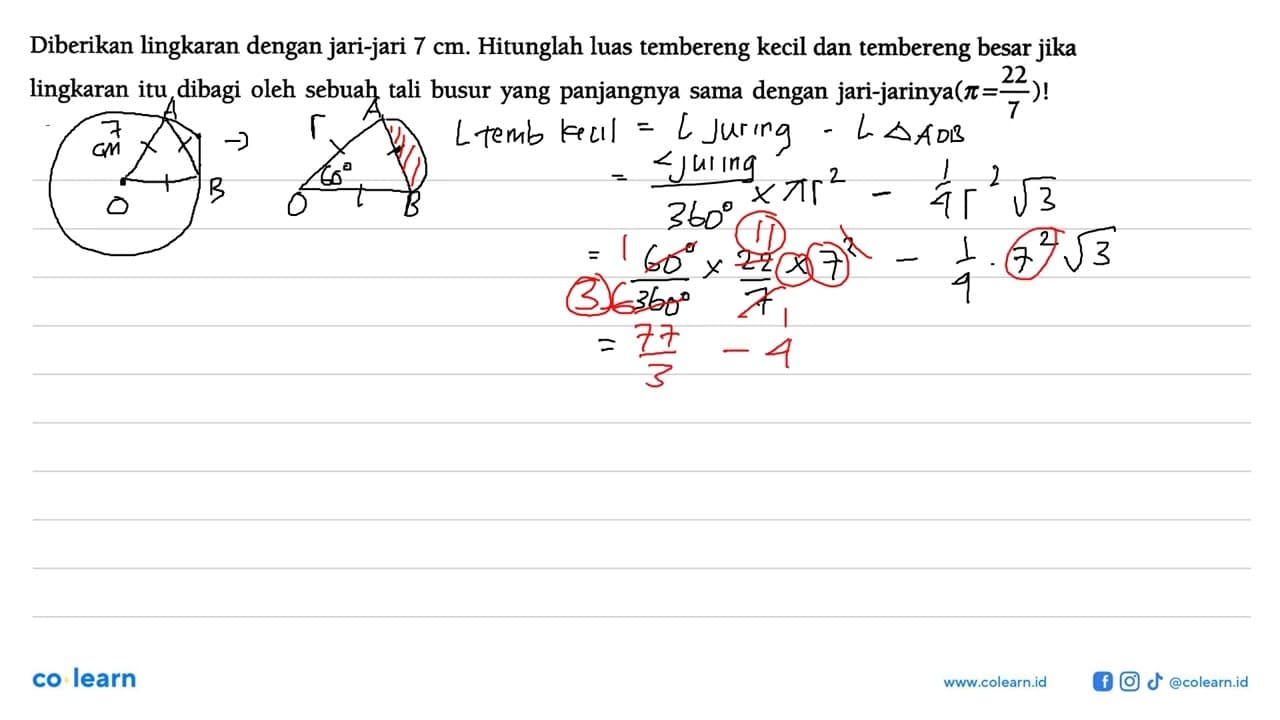 Diberikan lingkaran dengan jari-jari 7 cm. Hitunglah luas tembereng kecil dan tembereng besar jika
lingkaran itu dibagi oleh sebuah tali busur yang panjangnya sama dengan jari-jarinya(π=22/7)!
A
7 cm
O
B
→
A
r
60°
O
r
B
L temb kecil = L Juring - L △AOB
= <juring/360° × πr² - 1/4 r² √3
= 1 60°/360° 6 3 × 22/7 11 1 × 7² - 1/4 . 7² √3
= 77/3 - 4
co·learn
www.colearn.id
@colearn.id